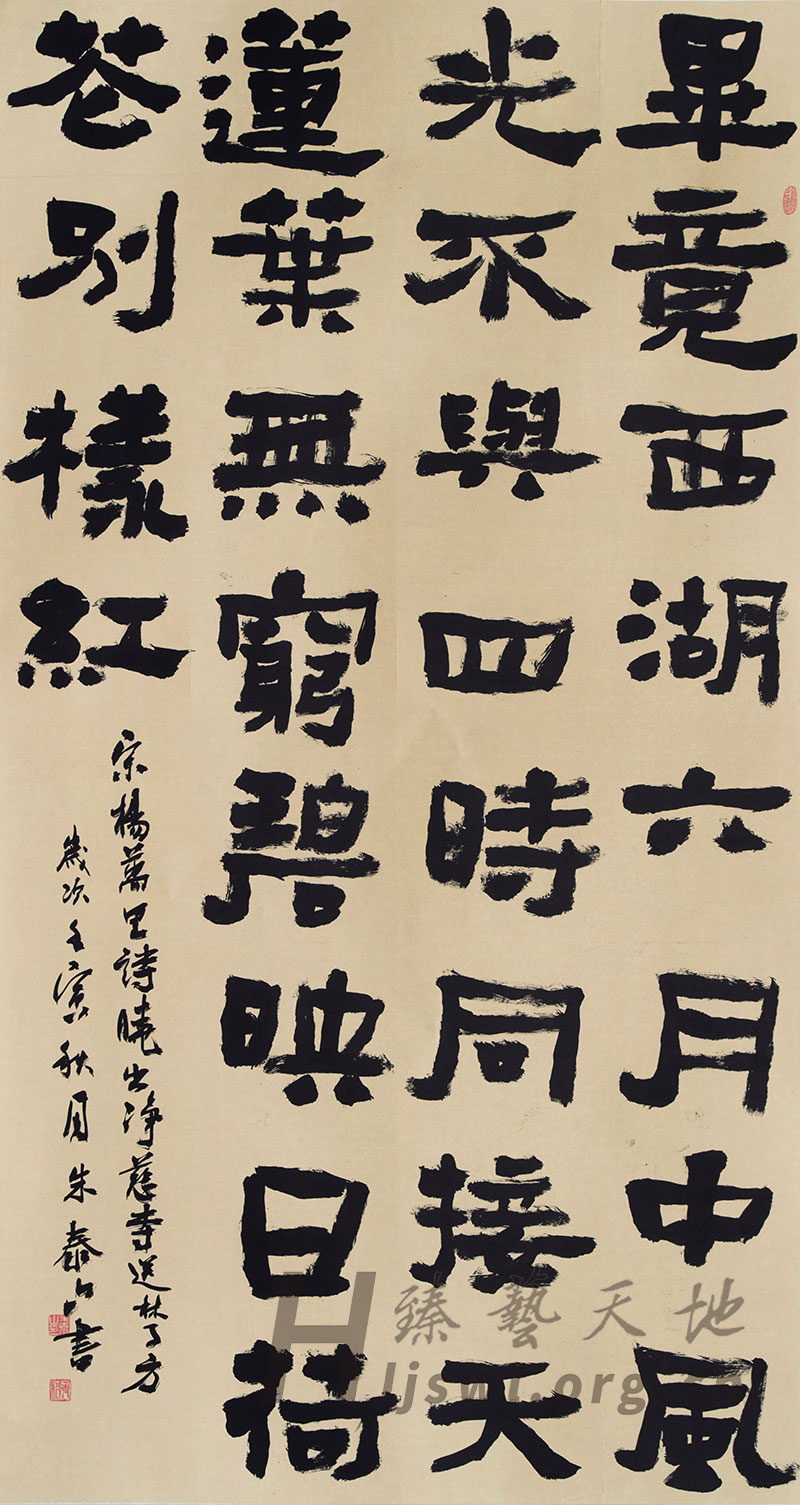 畢竟西湖六月中風
光不與四時同接天
蓮葉無窮碧映日荷
花别樣紅
宋楊萬里詩曉出淨慈寺送林子方
歲次壬寅秋月朱泰山書
臻藝天地